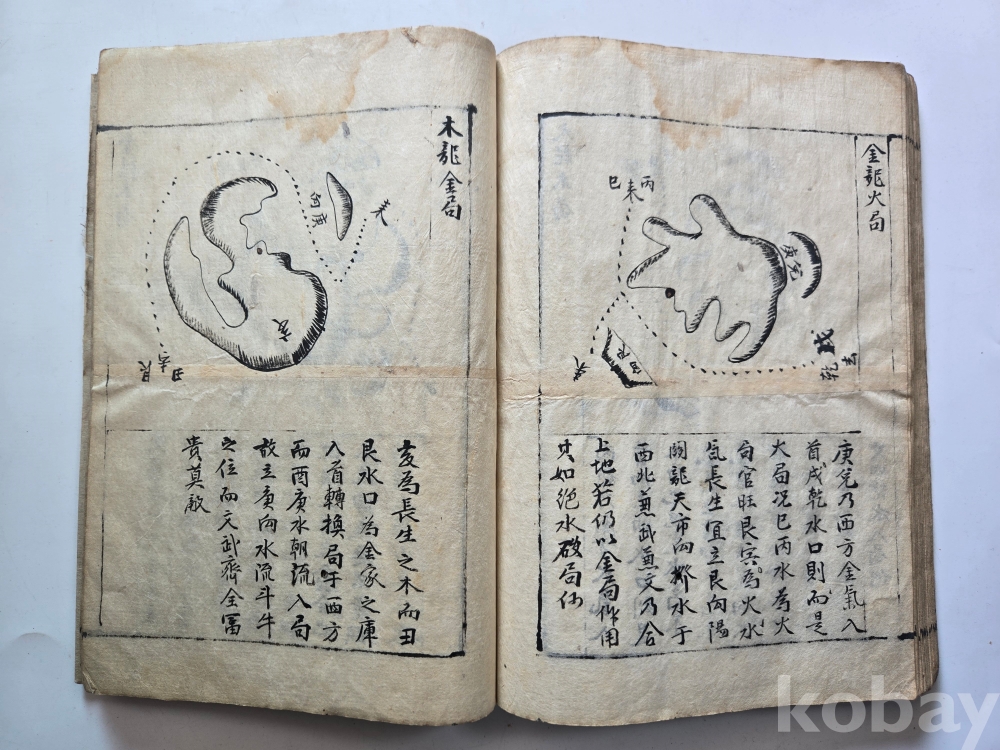 金龍火局
丙
來
巳
庚兌
戌
乾
去
向艮
庚兌乃西方金氣入
首戌乾水口則而是
火局况巳丙水為火
局官旺艮寅為火水
氣長生宜立艮向陽
關龍天市向揶水于
西北兼武兼文乃合
上地若仍以金局作用
只如絕水破局仙
木龍金局
來
向庚
亥
丑
去
艮
亥為長生之木而丑
艮水口為金家之庫
入首轉換局乍西方
而酉庚水朝流入局
故立庚向水流斗牛
之位而文武齊全冨
貴莫敵
kobay